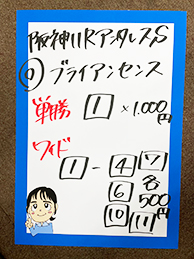 阪神11RアンタレスS
◎ブライアンセンス
単勝 1 ×1.000円
ワイド
1 - 4 7
6 各
10 11 500円